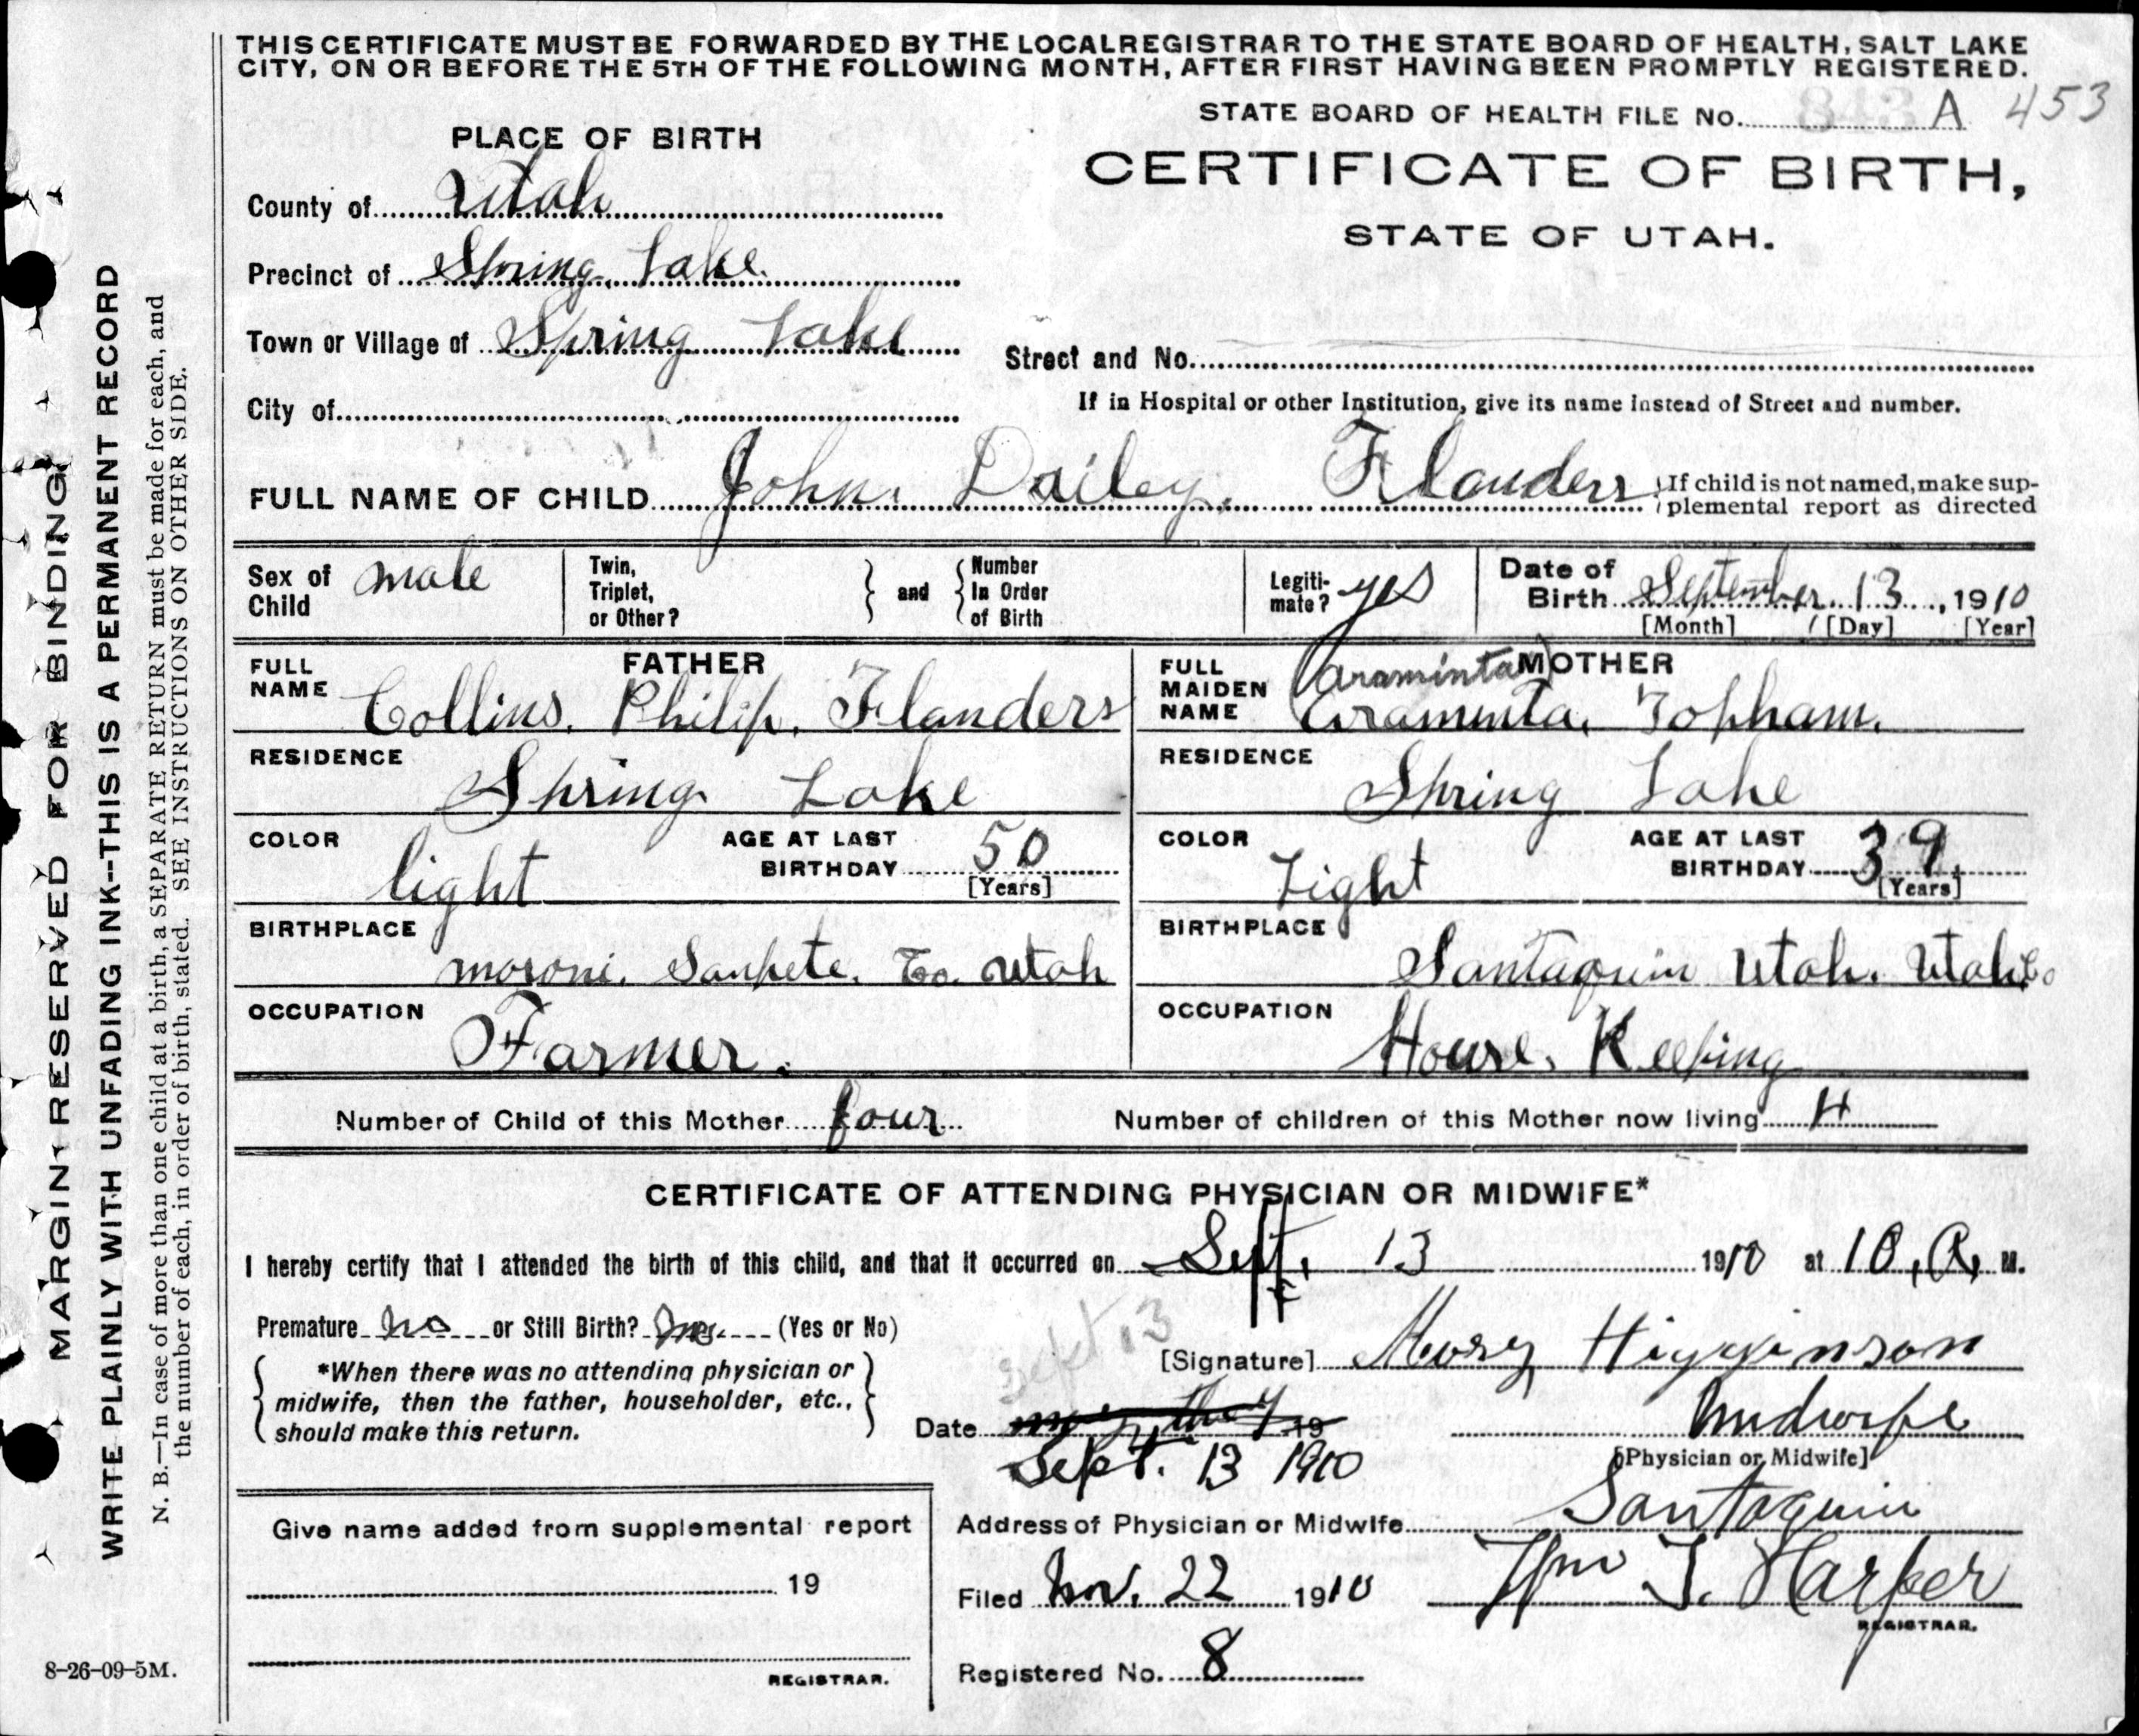 THIS CERTIFICATE MUST BE FORWARDED BY THE LOCAL REGISTRAR TO THE STATE BOARD OF HEALTH, SALT LAKE
CITY, ON OR BEFORE THE 5TH OF THE FOLLOWING MONTH, AFTER FIRST HAVING BEEN PROMPTLY REGISTERED.
STATE BOARD OF HEALTH FILE No. 843 A 453
PLACE OF BIRTH
CERTIFICATE OF BIRTH,
STATE OF UTAH.
County of Utah
Precinct of Spring Lake.
Town or Village of Spring Lake
Street and No.
City of
If in Hospital or other Institution, give its name instead of Street and number.
FULL NAME OF CHILD John. Dailey. Flanders
If child is not named, make sup-
plemental report as directed
Sex of Child male
Twin, Triplet, or Other? and Number In Order of Birth
Legiti-mate? yes
Date of Birth September 13, 1910
[Month] [Day] [Year]
FATHER
FULL NAME Collins. Philip. Flanders
RESIDENCE
Spring Lake
COLOR light
AGE AT LAST BIRTHDAY 50
[Years]
BIRTHPLACE
moroni. Sanpete. Co. Utah
OCCUPATION
Farmer.
MOTHER
(Araminta)
FULL MAIDEN NAME Araminta. Topham.
RESIDENCE
Spring Lake
COLOR Light
AGE AT LAST BIRTHDAY 39.
[Years]
BIRTHPLACE
Santaquin Utah. Utah Co
OCCUPATION
House. Keeping
Number of Child of this Mother four
Number of children of this Mother now living 4
CERTIFICATE OF ATTENDING PHYSICIAN OR MIDWIFE*
I hereby certify that I attended the birth of this child, and that it occurred on Sept. 13 1910 at 10, A, M.
Premature no or Still Birth? no. (Yes or No)
Sept 13
[Signature] Mary Higginson
*When there was no attending physician or
midwife, then the father, householder, etc.,
should make this return.
Date 19
Sept. 13 1910
Midwife
[Physician or Midwife]
Give name added from supplemental report
19
REGISTRAR.
Address of Physician or Midwife Santaquin
Filed Nov. 22 1910
Wm T. Harper
REGISTRAR.
Registered No. 8
8-26-09-5M.
MARGIN RESERVED FOR BINDING
WRITE PLAINLY WITH UNFADING INK--THIS IS A PERMANENT RECORD
N. B.—In case of more than one child at a birth, a SEPARATE RETURN must be made for each, and
the number of each, in order of birth, stated. SEE INSTRUCTIONS ON OTHER SIDE.